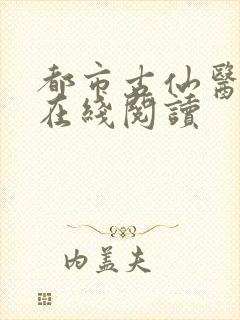 都市古仙醫
在綫閱讀
内蓋夫